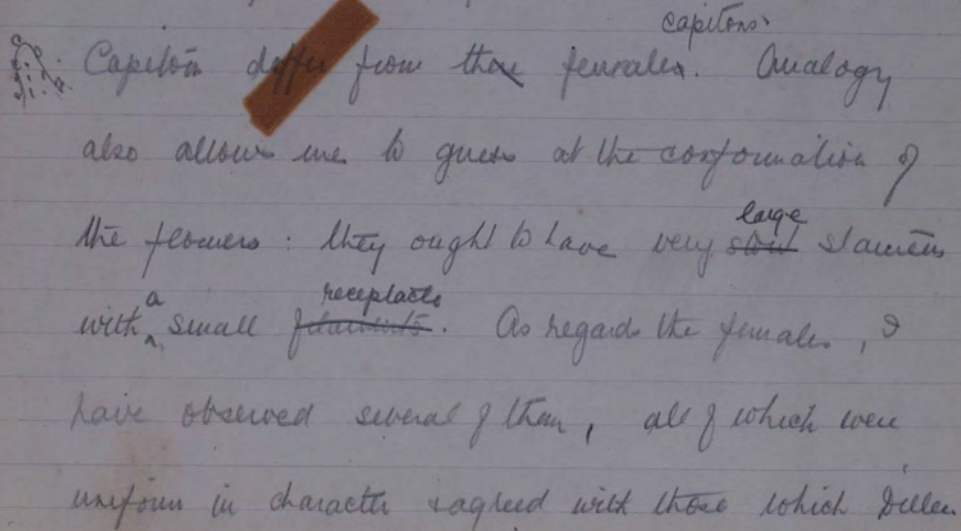 capitons
Capitons differ from the females. Analogy
also allows me to guess at the conformation of
the flowers : they ought to have very large stout stamens
with a small receptacle filaments. As regards the females, I
have observed several of them, all of which were
uniform in character & agreed with those which Dillen